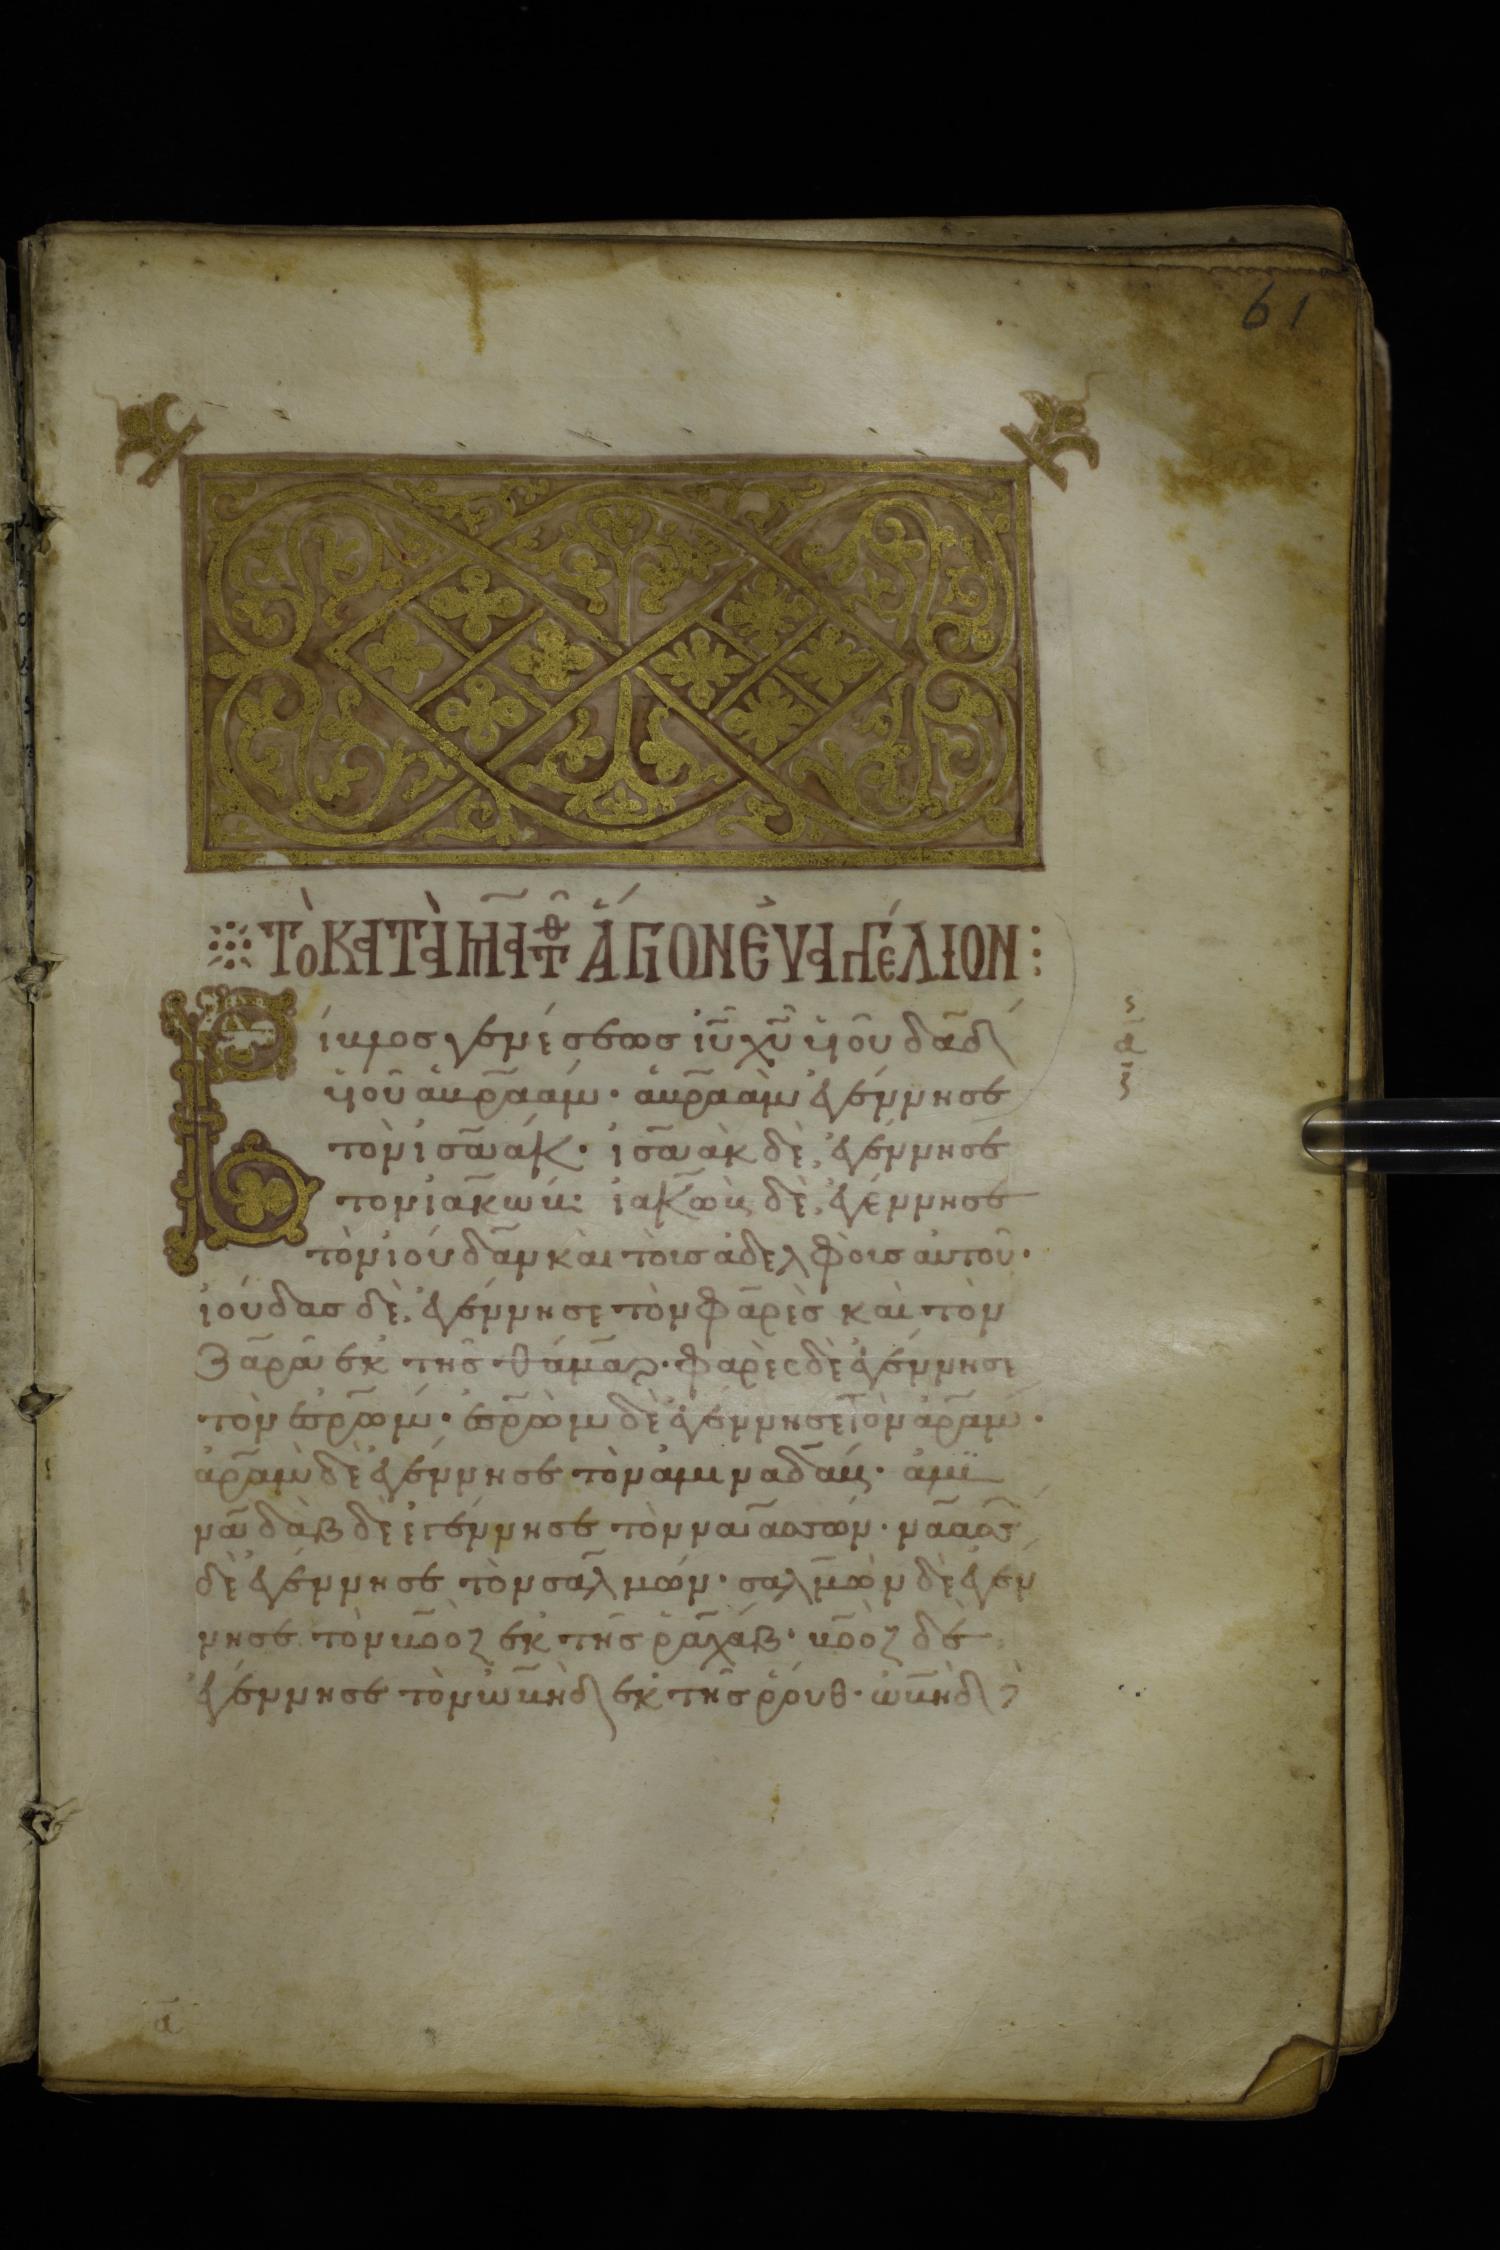 61
Τὸ κατὰ Ματθ ἅγιον εὐαγγέλιον:
Βίβλος γενέσεως ἰῡ χῡ υἱοῦ δαδ
υἱοῦ ἀβραάμ· ἀβραὰμ ἐγέννησε
τὸν ἰσαάκ· ἰσαὰκ δὲ ἐγέννησε
τὸν ἰακώβ: ἰακὼβ δὲ ἐγέννησε
τὸν ἰούδαν καὶ τοὺς ἀδελφοὺς αὐτοῦ·
ἰούδας δὲ ἐγέννησε τὸν φαρὲς καὶ τὸν
ζαρὰ ἐκ τῆς θάμαρ· φαρὲς δὲ ἐγέννησε
τὸν ἐσρώμ· ἐσρὼμ δὲ ἐγέννησε τὸν ἀράμ·
ἀρὰμ δὲ ἐγέννησε τὸν ἀμιναδάβ· ἀμι
ναδὰβ δὲ ἐγέννησε τὸν ναασσών· ναασσ
δὲ ἐγέννησε τὸν σαλμών· σαλμὼν δὲ ἐγέν
νησε τὸν βοὸζ ἐκ τῆς ῥαχάβ· βοὸζ δὲ
ἐγέννησε τὸν ὠβὴδ ἐκ τῆς ῥούθ· ὠβὴδ δὲ
α